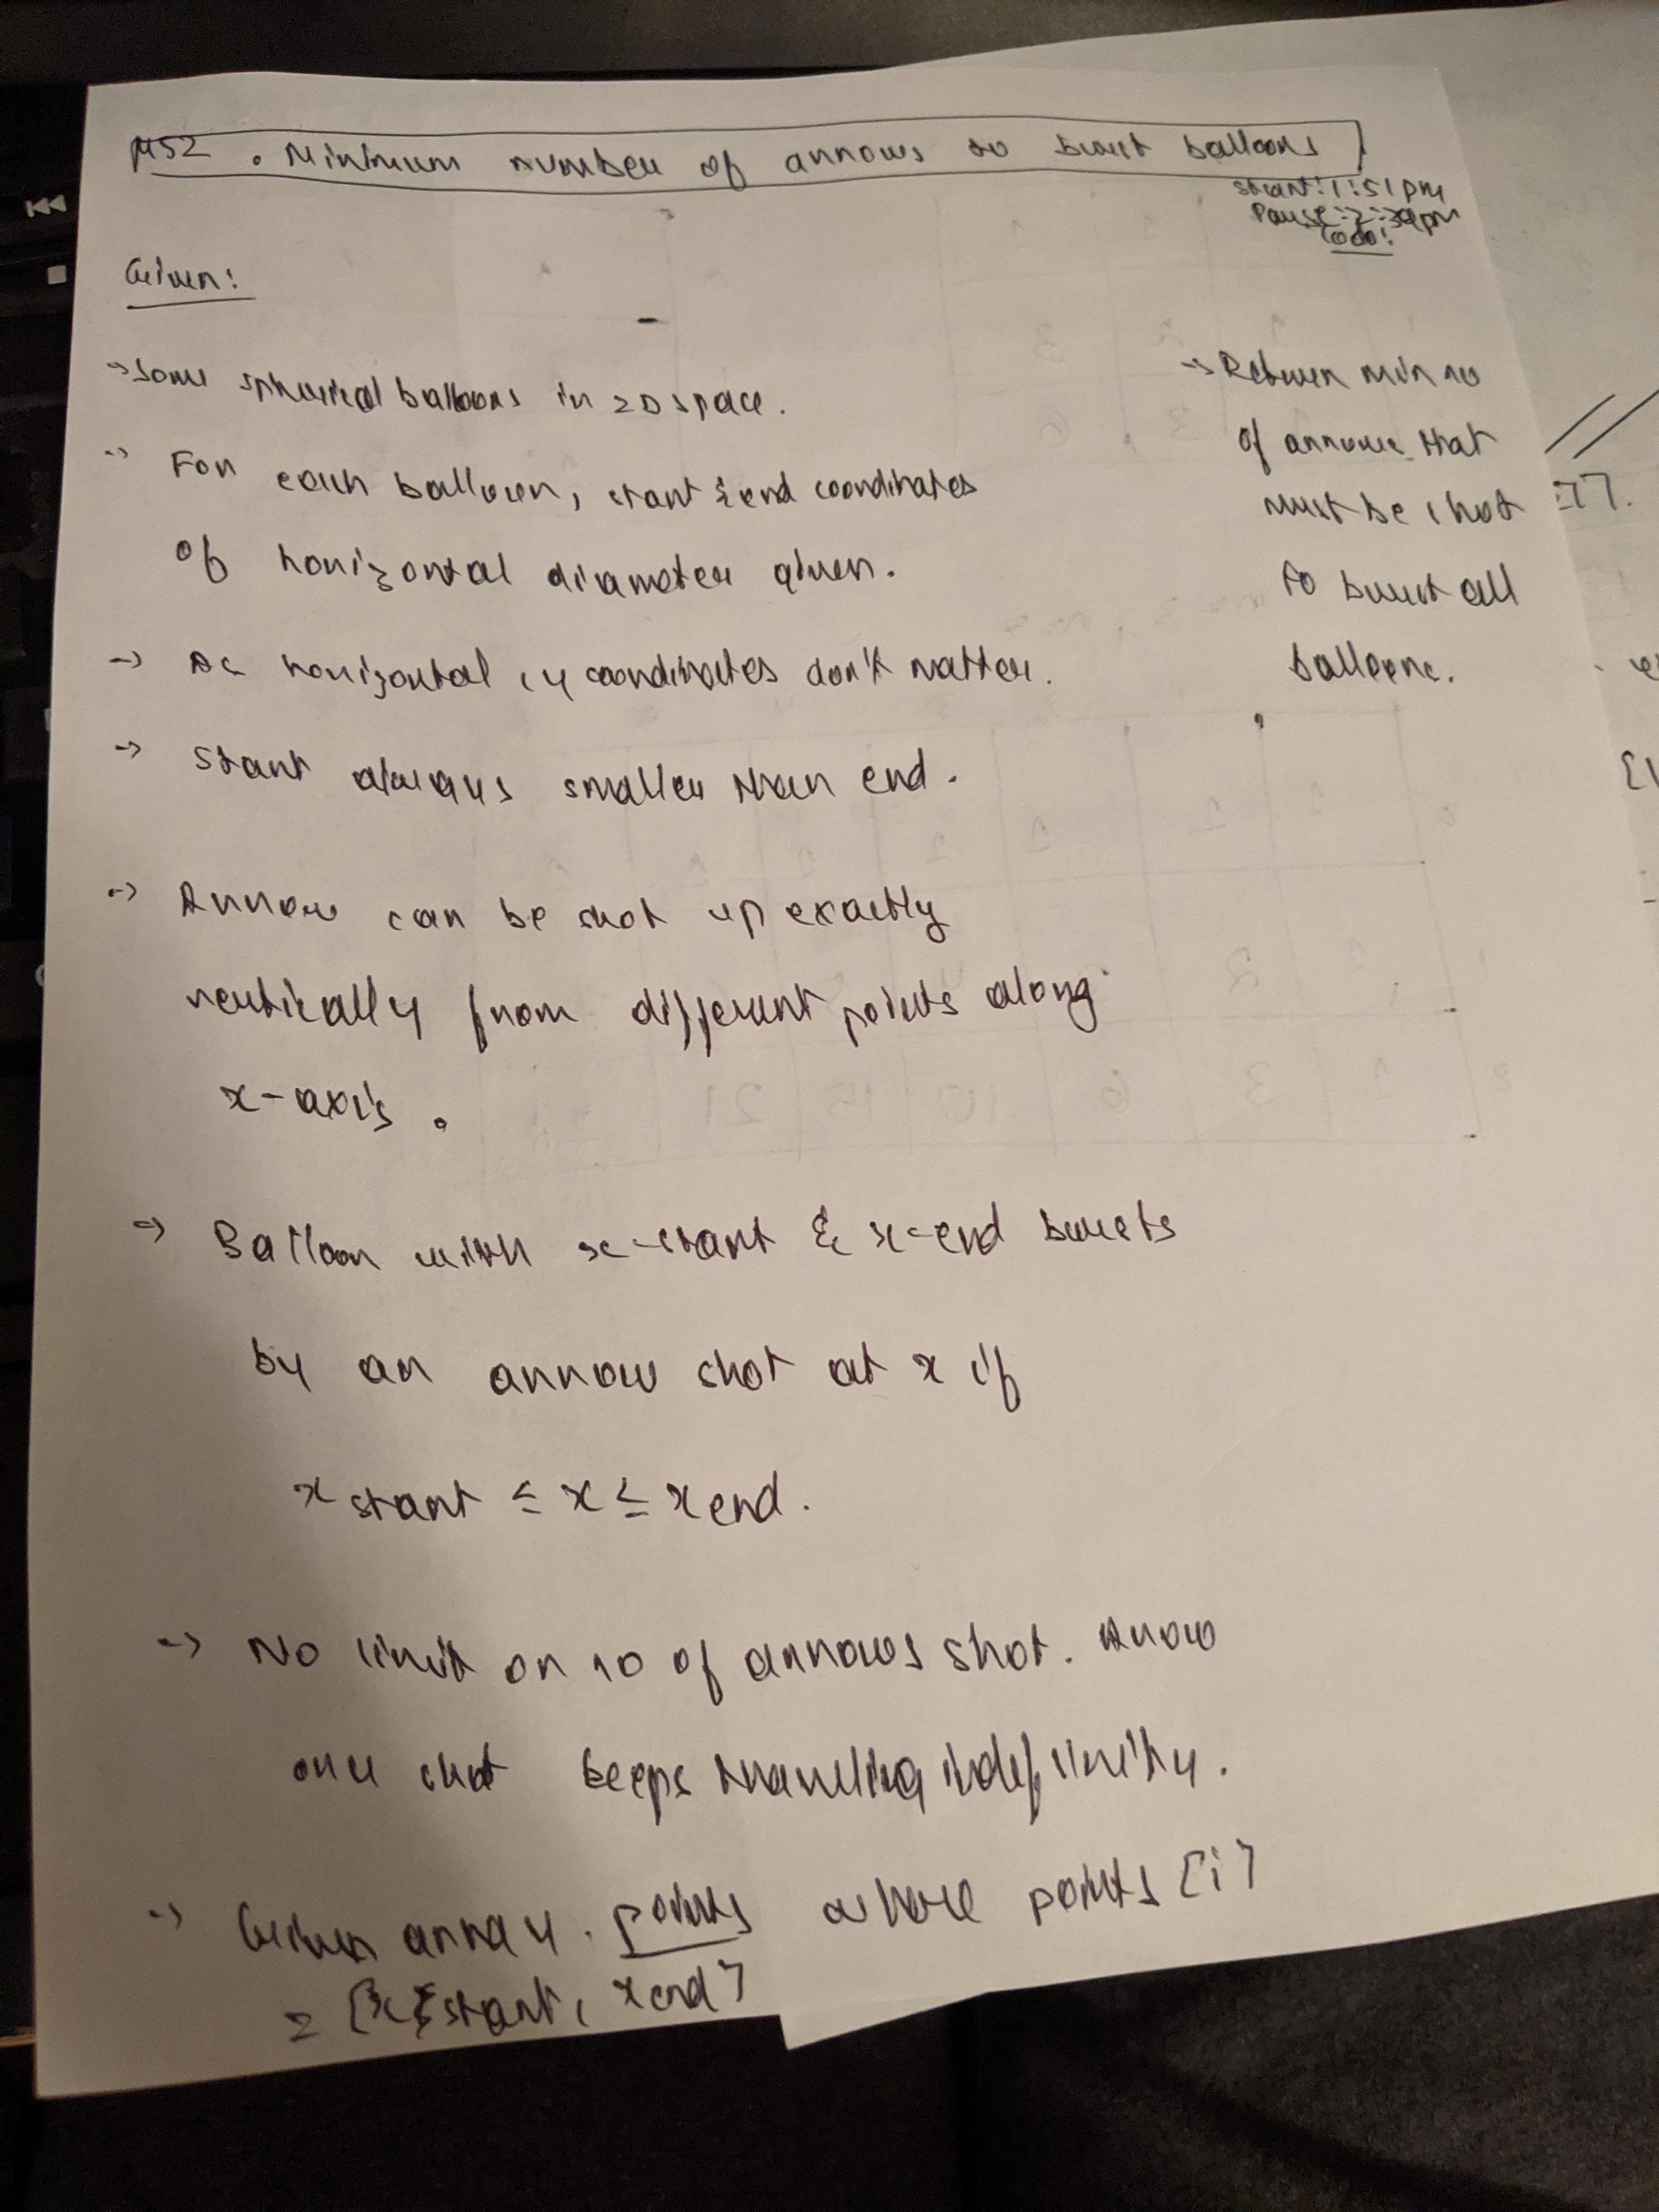 452. Minimum number of arrows to burst balloons
Start: 1:51 pm
Pause: 2:39pm
Given:
→ Some spherical balloons in 2D space.
→ For each balloon, start & end coordinates
of horizontal diameter given.
→ As horizontal, y coordinates don't matter.
→ Start always smaller than end.
→ Arrow can be shot up exactly
vertically from different points along
x-axis.
→ Balloon with x-start & x-end bursts
by an arrow shot at x if
x start ≤ x ≤ x end.
→ No limit on no of arrows shot. Arrow
once shot keeps traveling indefinitely.
→ Given array. points where points [i]
= [x start, x end]
→ Return min no
of arrows that
must be shot
to burst all
balloons.